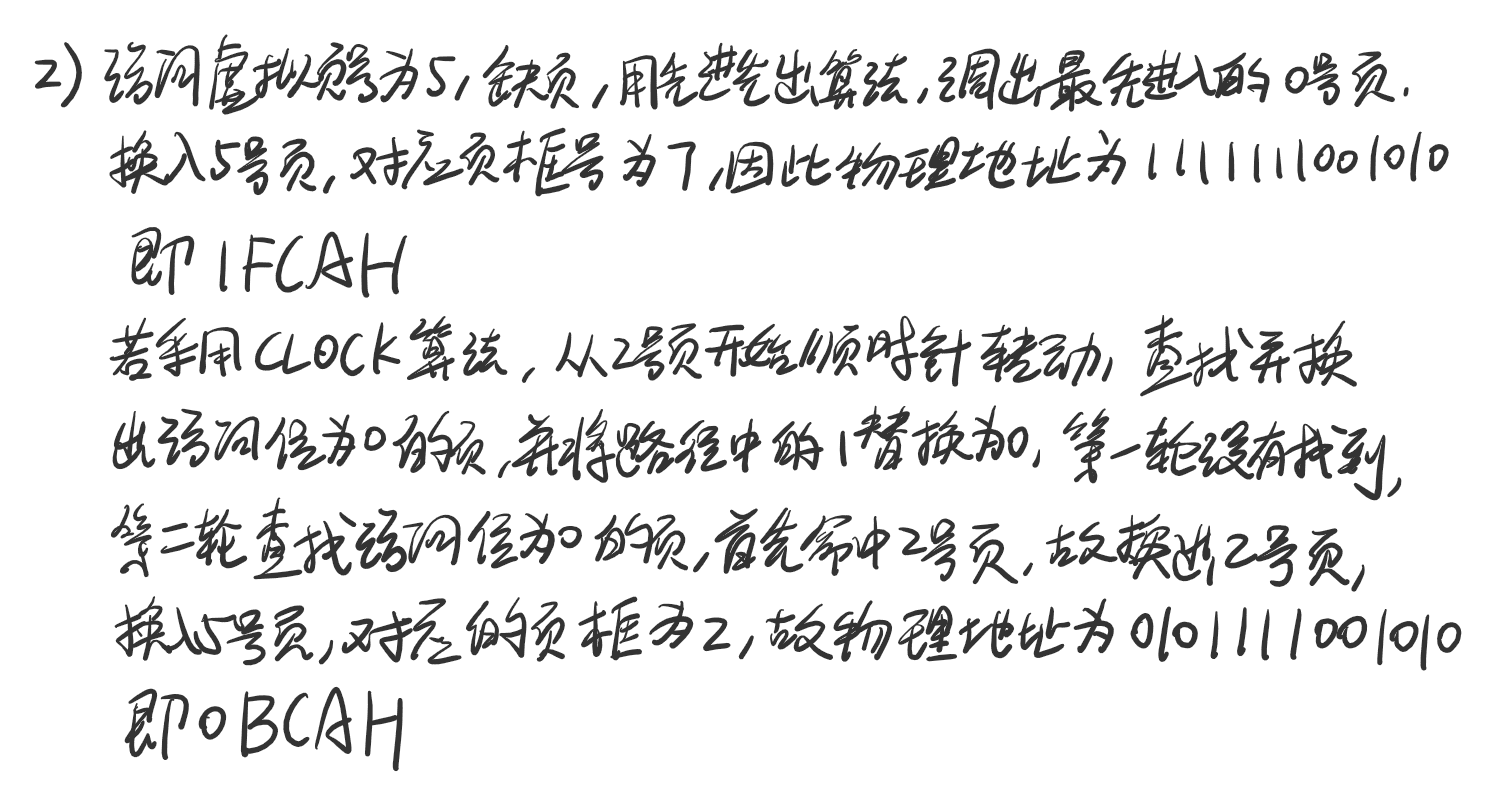 2) 访问虚拟页号为5，缺页，用先进先出算法，调出最先进入的0号页.
换入5号页，对应页框号为7，因此物理地址为1111111001010
即1FCAH
若采用CLOCK算法，从2号页开始顺时针转动，查找并换
出访问位为0的页，并将路径中的1替换为0，第一轮没有找到，
第二轮查找访问位为0的页，首先命中2号页，故换出2号页，
换入5号页，对应的页框为2，故物理地址为0101111001010
即0BCAH